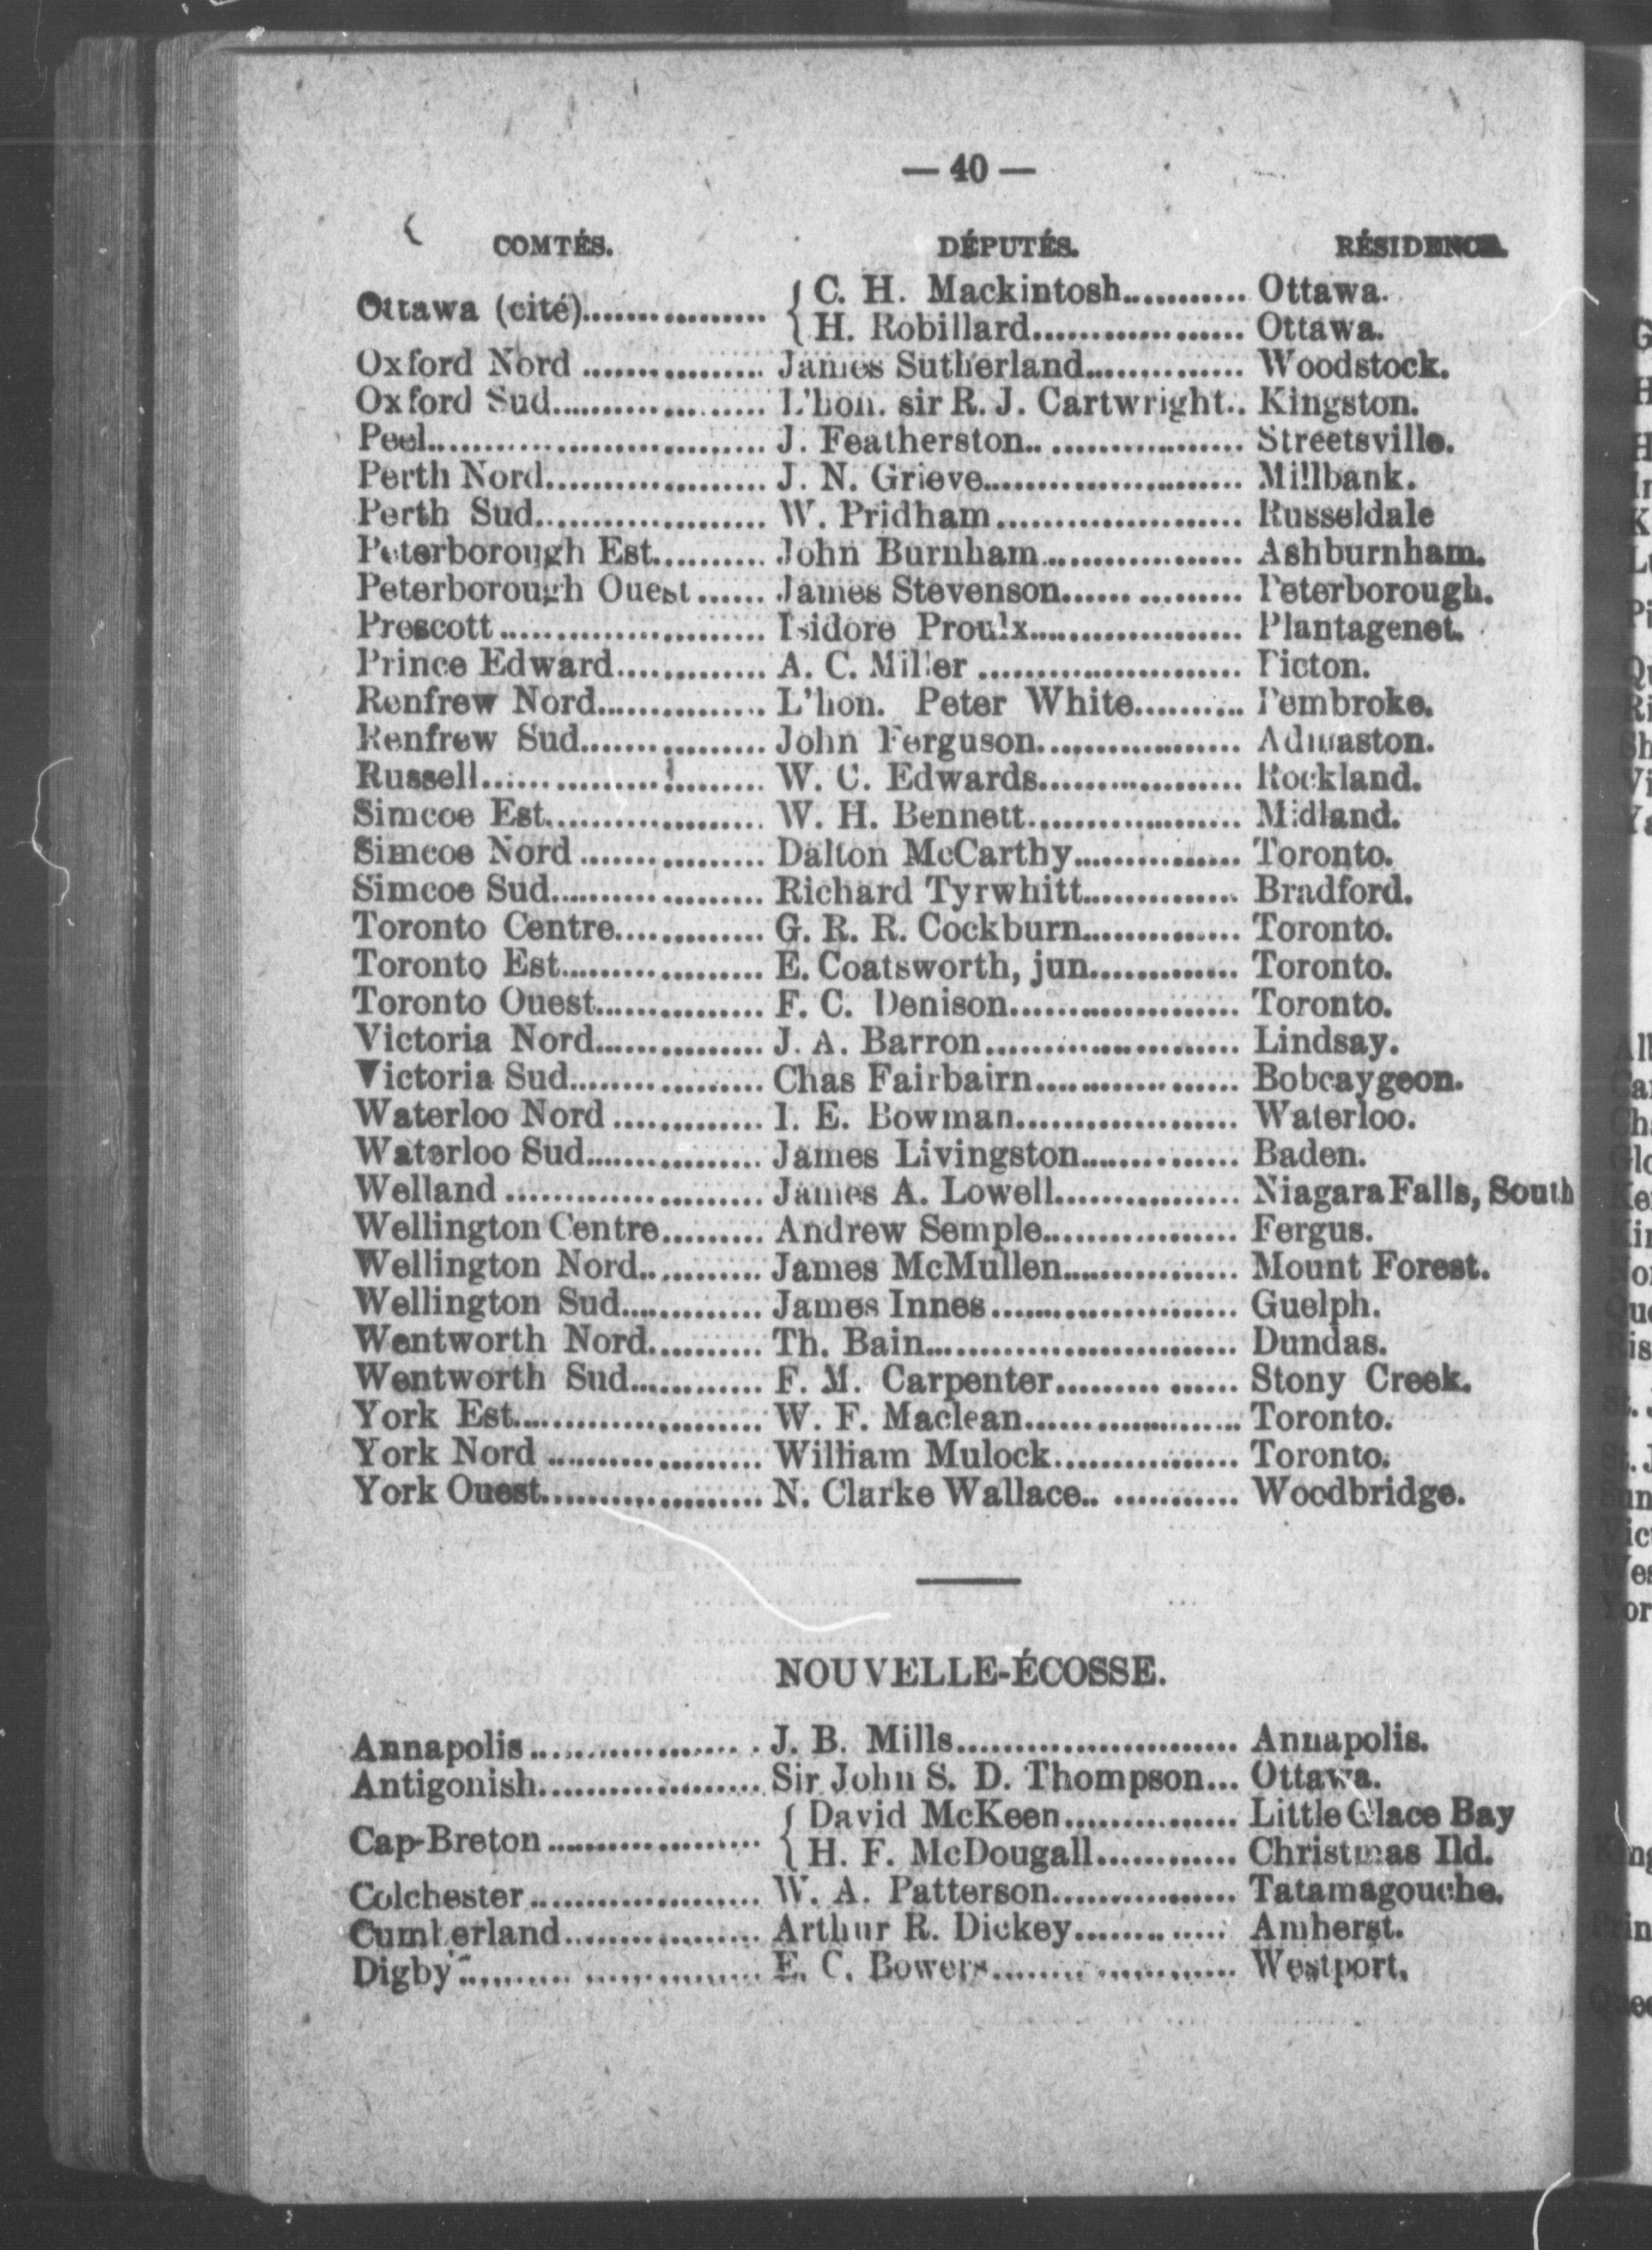 — 40 —
COMTÉS. DÉPUTÉS. RÉSIDENCE.
Ottawa (cité)................. { C. H. Mackintosh............ Ottawa.
{ H. Robillard.................... Ottawa.
Oxford Nord ................. James Sutherland............... Woodstock.
Oxford Sud.................... L'hon. sir R. J. Cartwright.. Kingston.
Peel................................ J. Featherston.. .................. Streetsville.
Perth Nord..................... J. N. Grieve......................... Millbank.
Perth Sud...................... W. Pridham....................... Russeldale
Peterborough Est........... John Burnham................... Ashburnham.
Peterborough Ouest ...... James Stevenson...... .......... Peterborough.
Prescott ......................... Isidore Proulx.................... Plantagenet.
Prince Edward.............. A. C. Miller ......................... Picton.
Renfrew Nord................ L'hon. Peter White.......... Pembroke.
Renfrew Sud.................. John Ferguson................... Admaston.
Russell........................... W. C. Edwards................... Rockland.
Simcoe Est..................... W. H. Bennett.................... Midland.
Simcoe Nord .................. Dalton McCarthy................ Toronto.
Simcoe Sud.................... Richard Tyrwhitt............... Bradford.
Toronto Centre.............. G. R. R. Cockburn............... Toronto.
Toronto Est................... E. Coatsworth, jun.............. Toronto.
Toronto Ouest................ F. C. Denison...................... Toronto.
Victoria Nord................ J. A. Barron........................ Lindsay.
Victoria Sud.................. Chas Fairbairn................... Bobcaygeon.
Waterloo Nord .............. I. E. Bowman..................... Waterloo.
Waterloo Sud................. James Livingston............... Baden.
Welland ......................... James A. Lowell................. Niagara Falls, South
Wellington Centre......... Andrew Semple.................. Fergus.
Wellington Nord............ James McMullen................ Mount Forest.
Wellington Sud............. James Innes ....................... Guelph.
Wentworth Nord........... Th. Bain............................. Dundas.
Wentworth Sud............. F. M. Carpenter......... ...... Stony Creek.
York Est........................ W. F. Maclean..................... Toronto.
York Nord ..................... William Mulock................. Toronto.
York Ouest..................... N. Clarke Wallace.. ............ Woodbridge.
NOUVELLE-ÉCOSSE.
Annapolis ...................... J. B. Mills........................... Annapolis.
Antigonish..................... Sir John S. D. Thompson... Ottawa.
Cap-Breton .................... { David McKeen................ Little Glace Bay
{ H. F. McDougall............. Christmas Ild.
Colchester ...................... W. A. Patterson.................. Tatamagouche.
Cumberland................... Arthur R. Dickey.............. Amherst.
Digby ............................. E. C. Bowers....................... Westport.